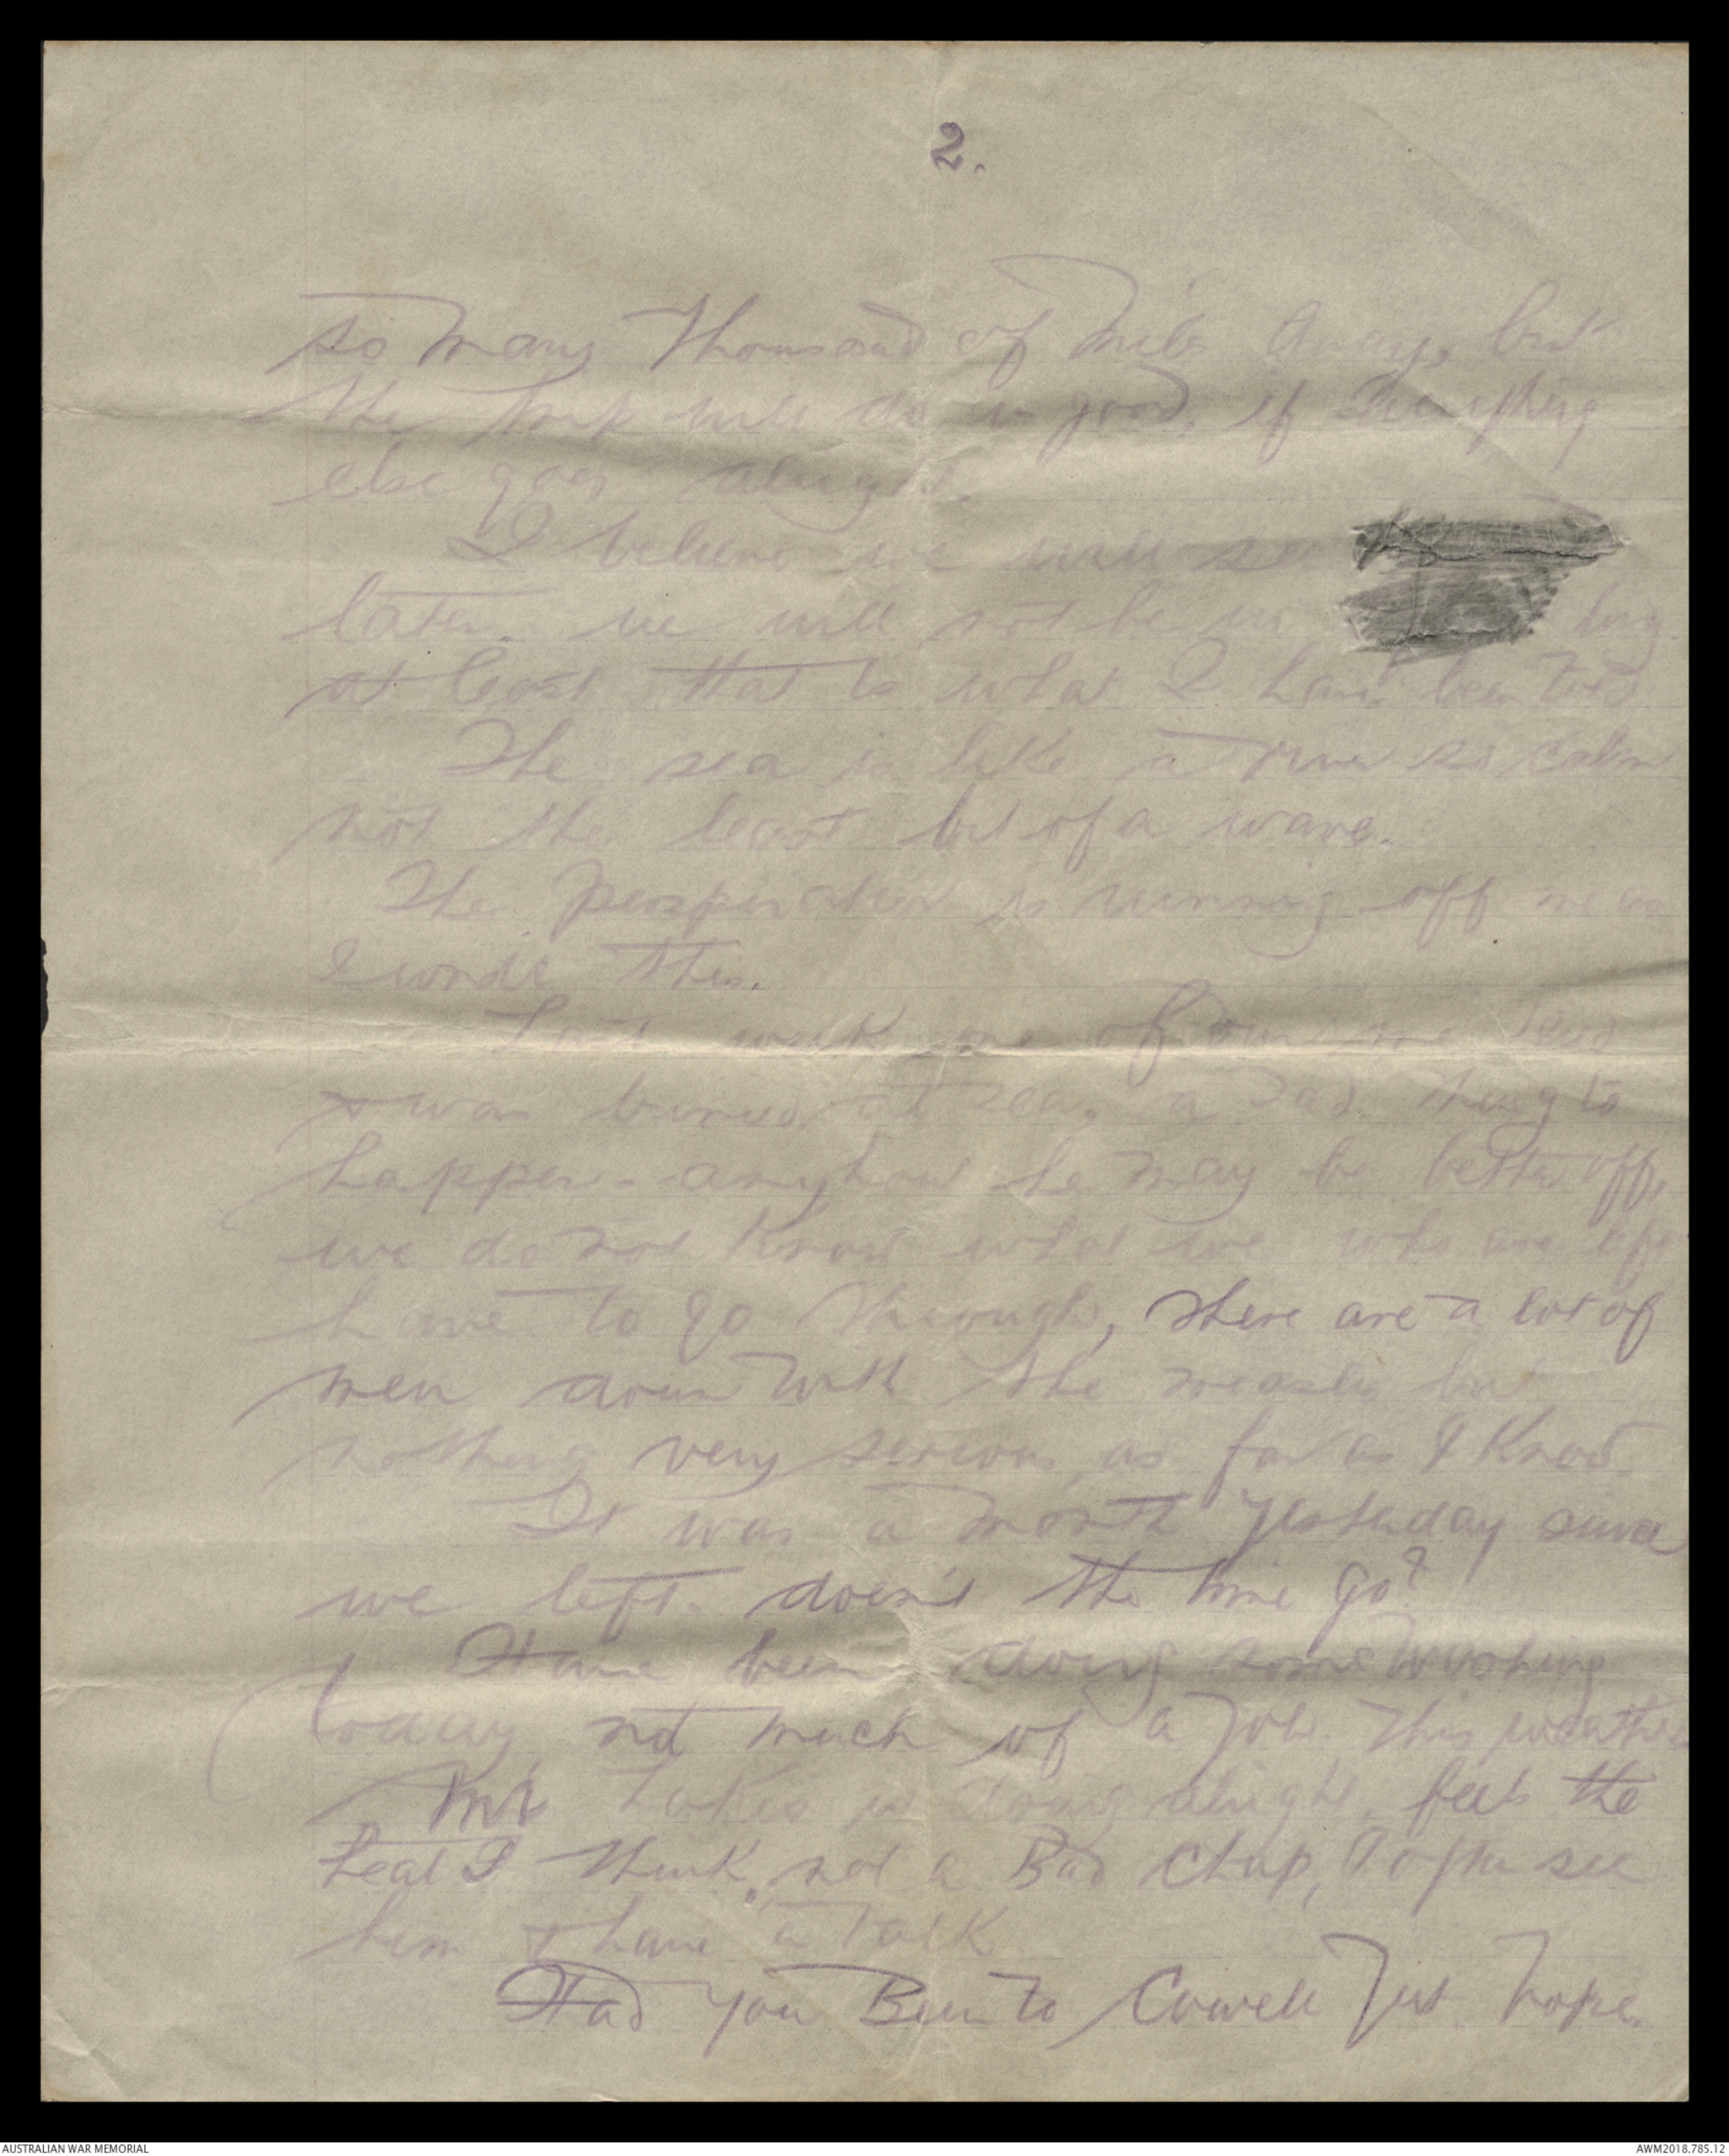 2.
so many thousand of miles away, but
the trip will do us good, if everything
else goes alright.
I believe we will see
later. we will not be in long
at least that is what I have been told
The sea is like a river so calm
not the least bit of a wave.
The perspiration is running off me as
I write this.
Last week one of our men died
& was buried at sea, a sad thing to
happen - anyhow he may be better off,
we do not know what we who are left
have to go through, there are a lot of
men down with the measles but
nothing very serious as far as I know.
It was a month yesterday since
we left. doesn't the time go?
Have been doing some washing
today not much of a job this weather
Mr is doing alright, feels the
heat I think, not a Bad chap, I often see
him & have a talk
Had you Been to Cowell yet hope.
AUSTRALIAN WAR MEMORIAL
AWM2018.785.12